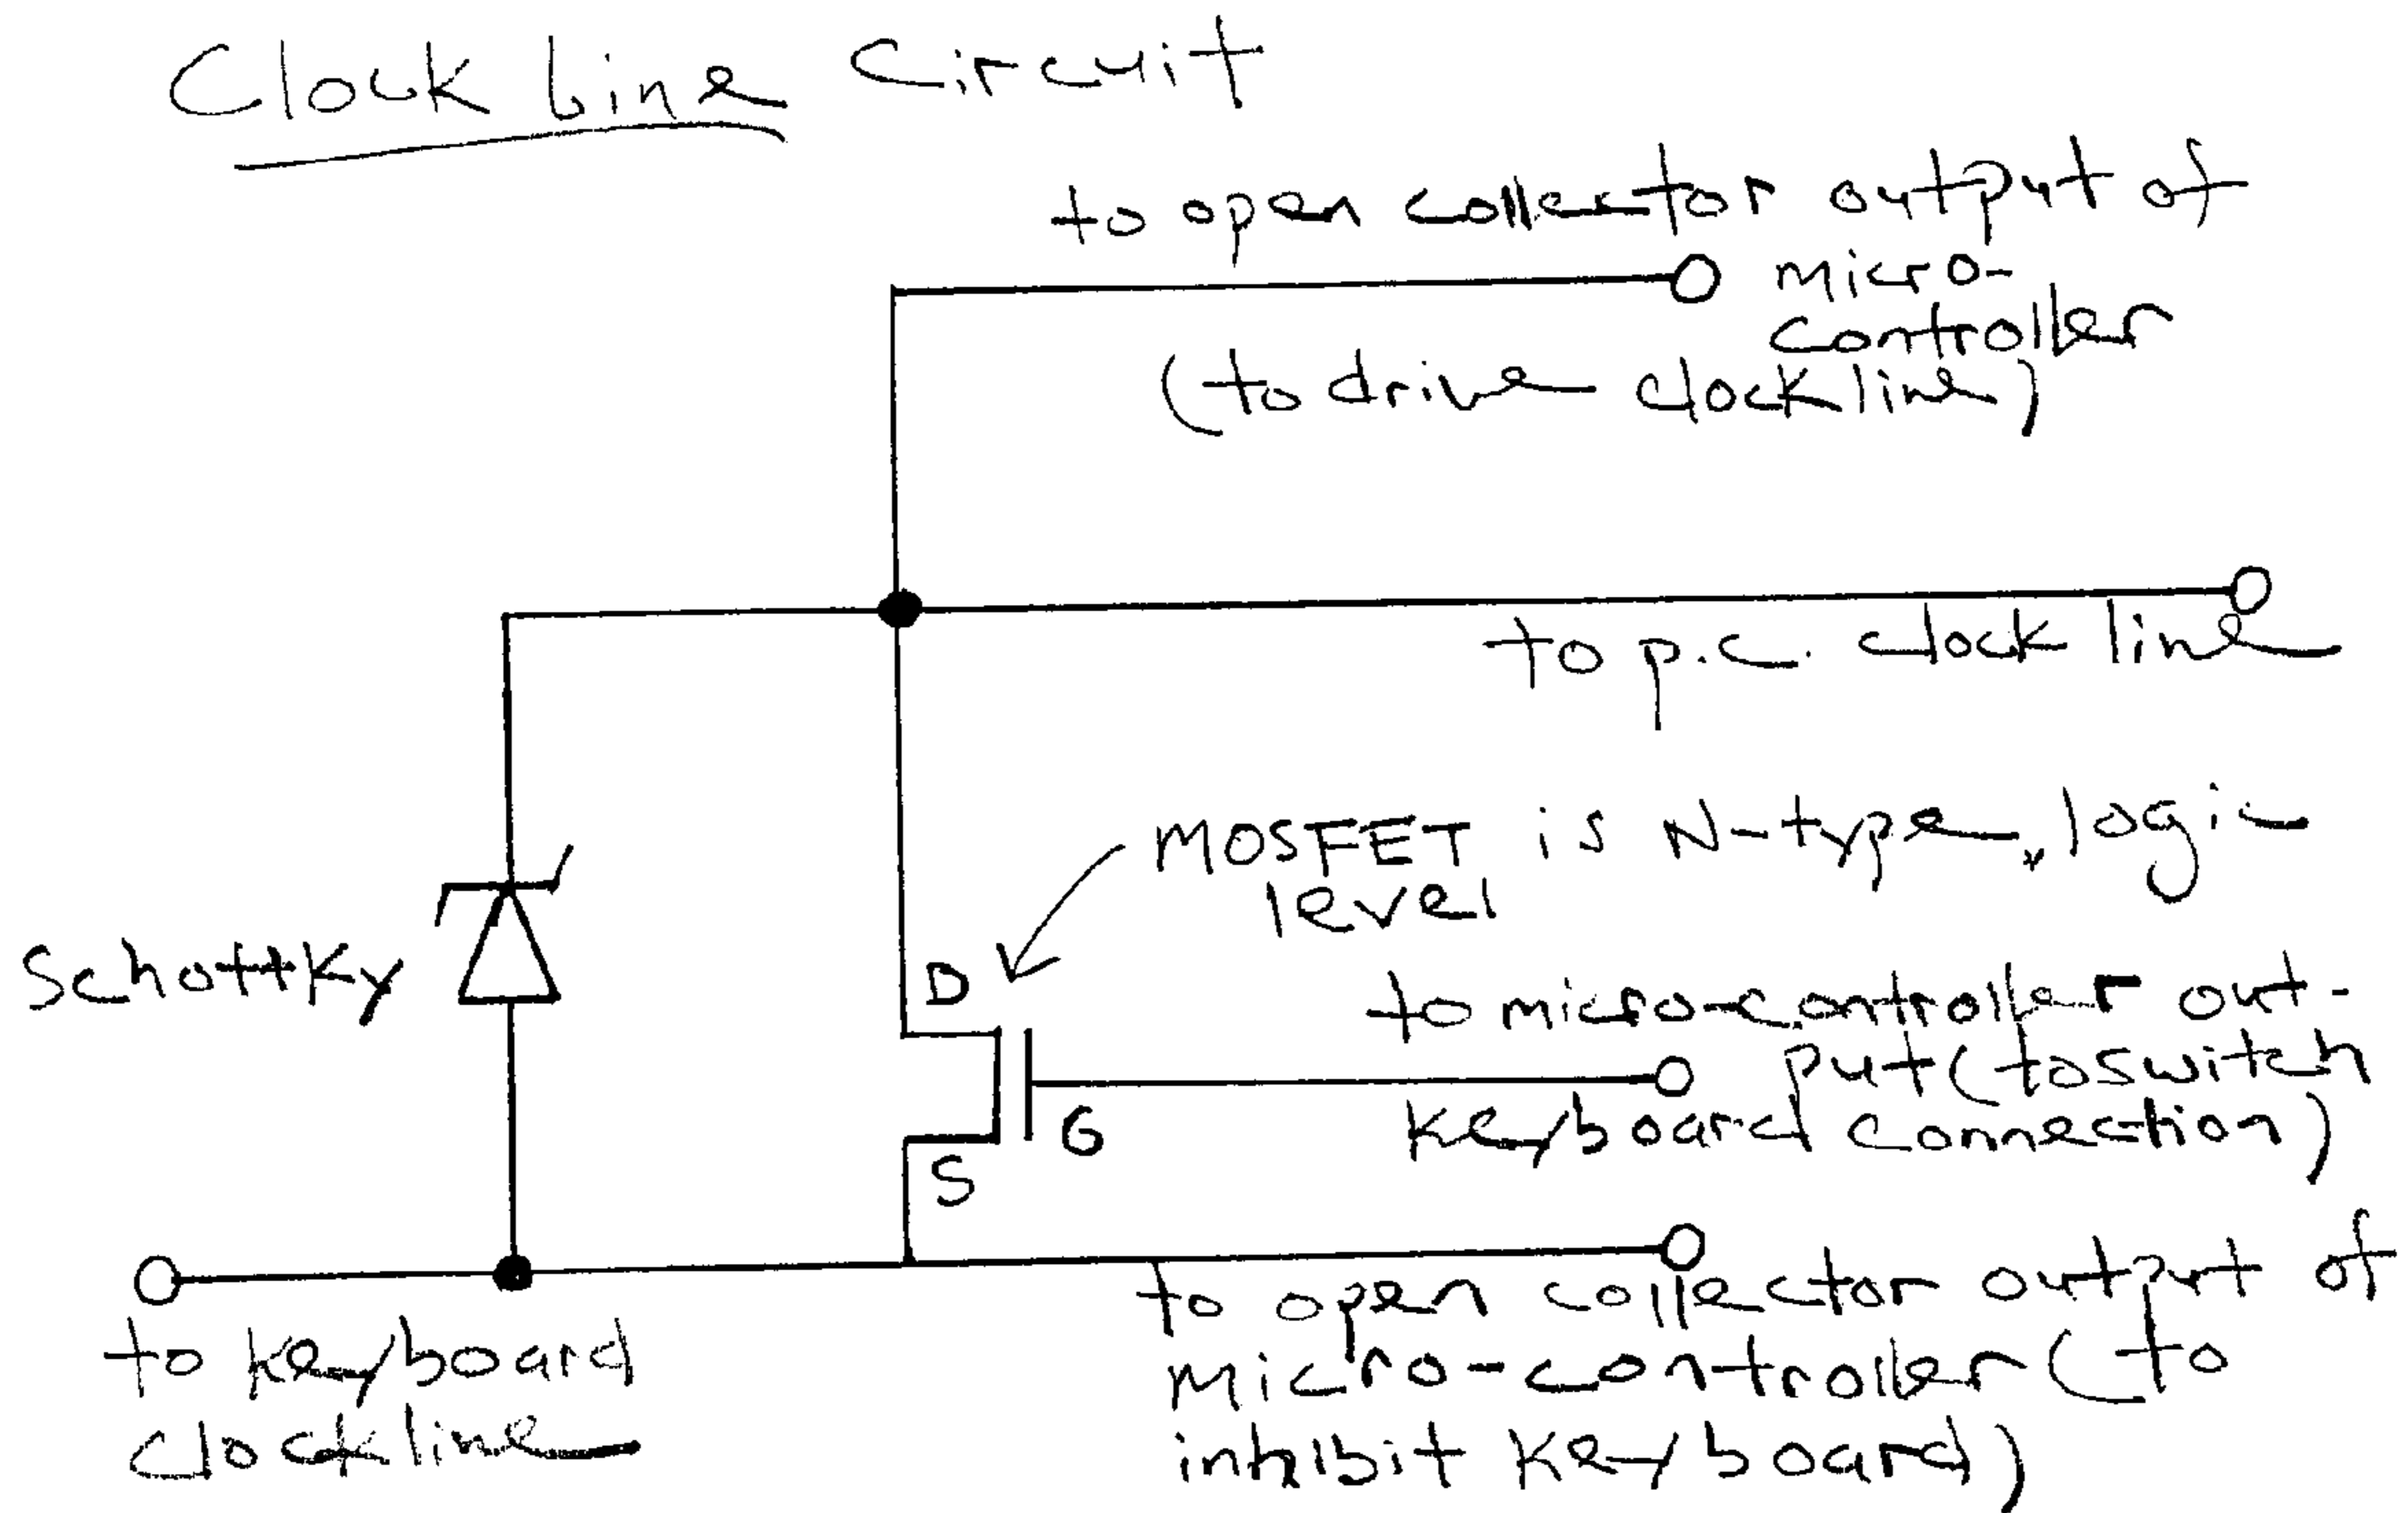 Clock Line Circuit
to open collector output of
micro-
controller
(to drive clock line)
to p.c. clock line
MOSFET is N-type, logic
level
Schottky
D
to micro-controller out-
put (to switch
keyboard connection)
G
S
to keyboard
clock line
to open collector output of
micro-controller (to
inhibit keyboard)